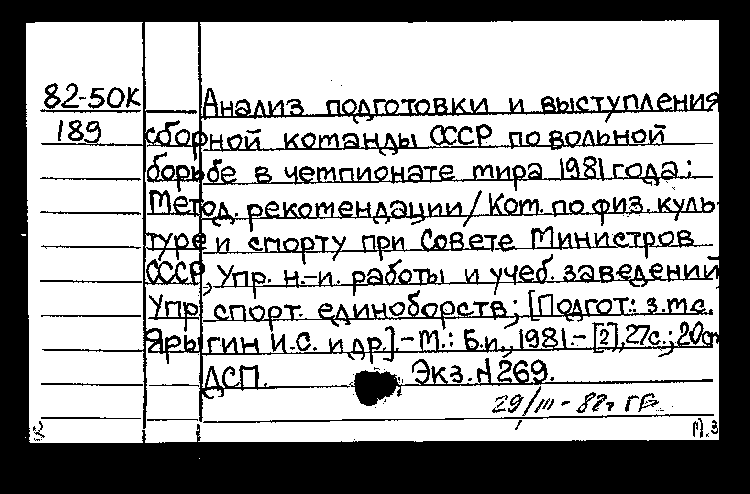 82-50К Анализ подготовки и выступления
189 сборной команды СССР по вольной
борьбе в чемпионате мира 1981 года:
Метод. рекомендации/Ком. по физ. куль-
туре и спорту при Совете Министров
СССР, Упр. н.-и. работы и учеб. заведений,
Упр спорт. единоборств; [Подгот.: з.м.с.
Ярыгин И.С. и др.]-М.: Б.и., 1981.-[2],27с.; 20см
ДСП. Экз. N269.
29/III-82г
М.З